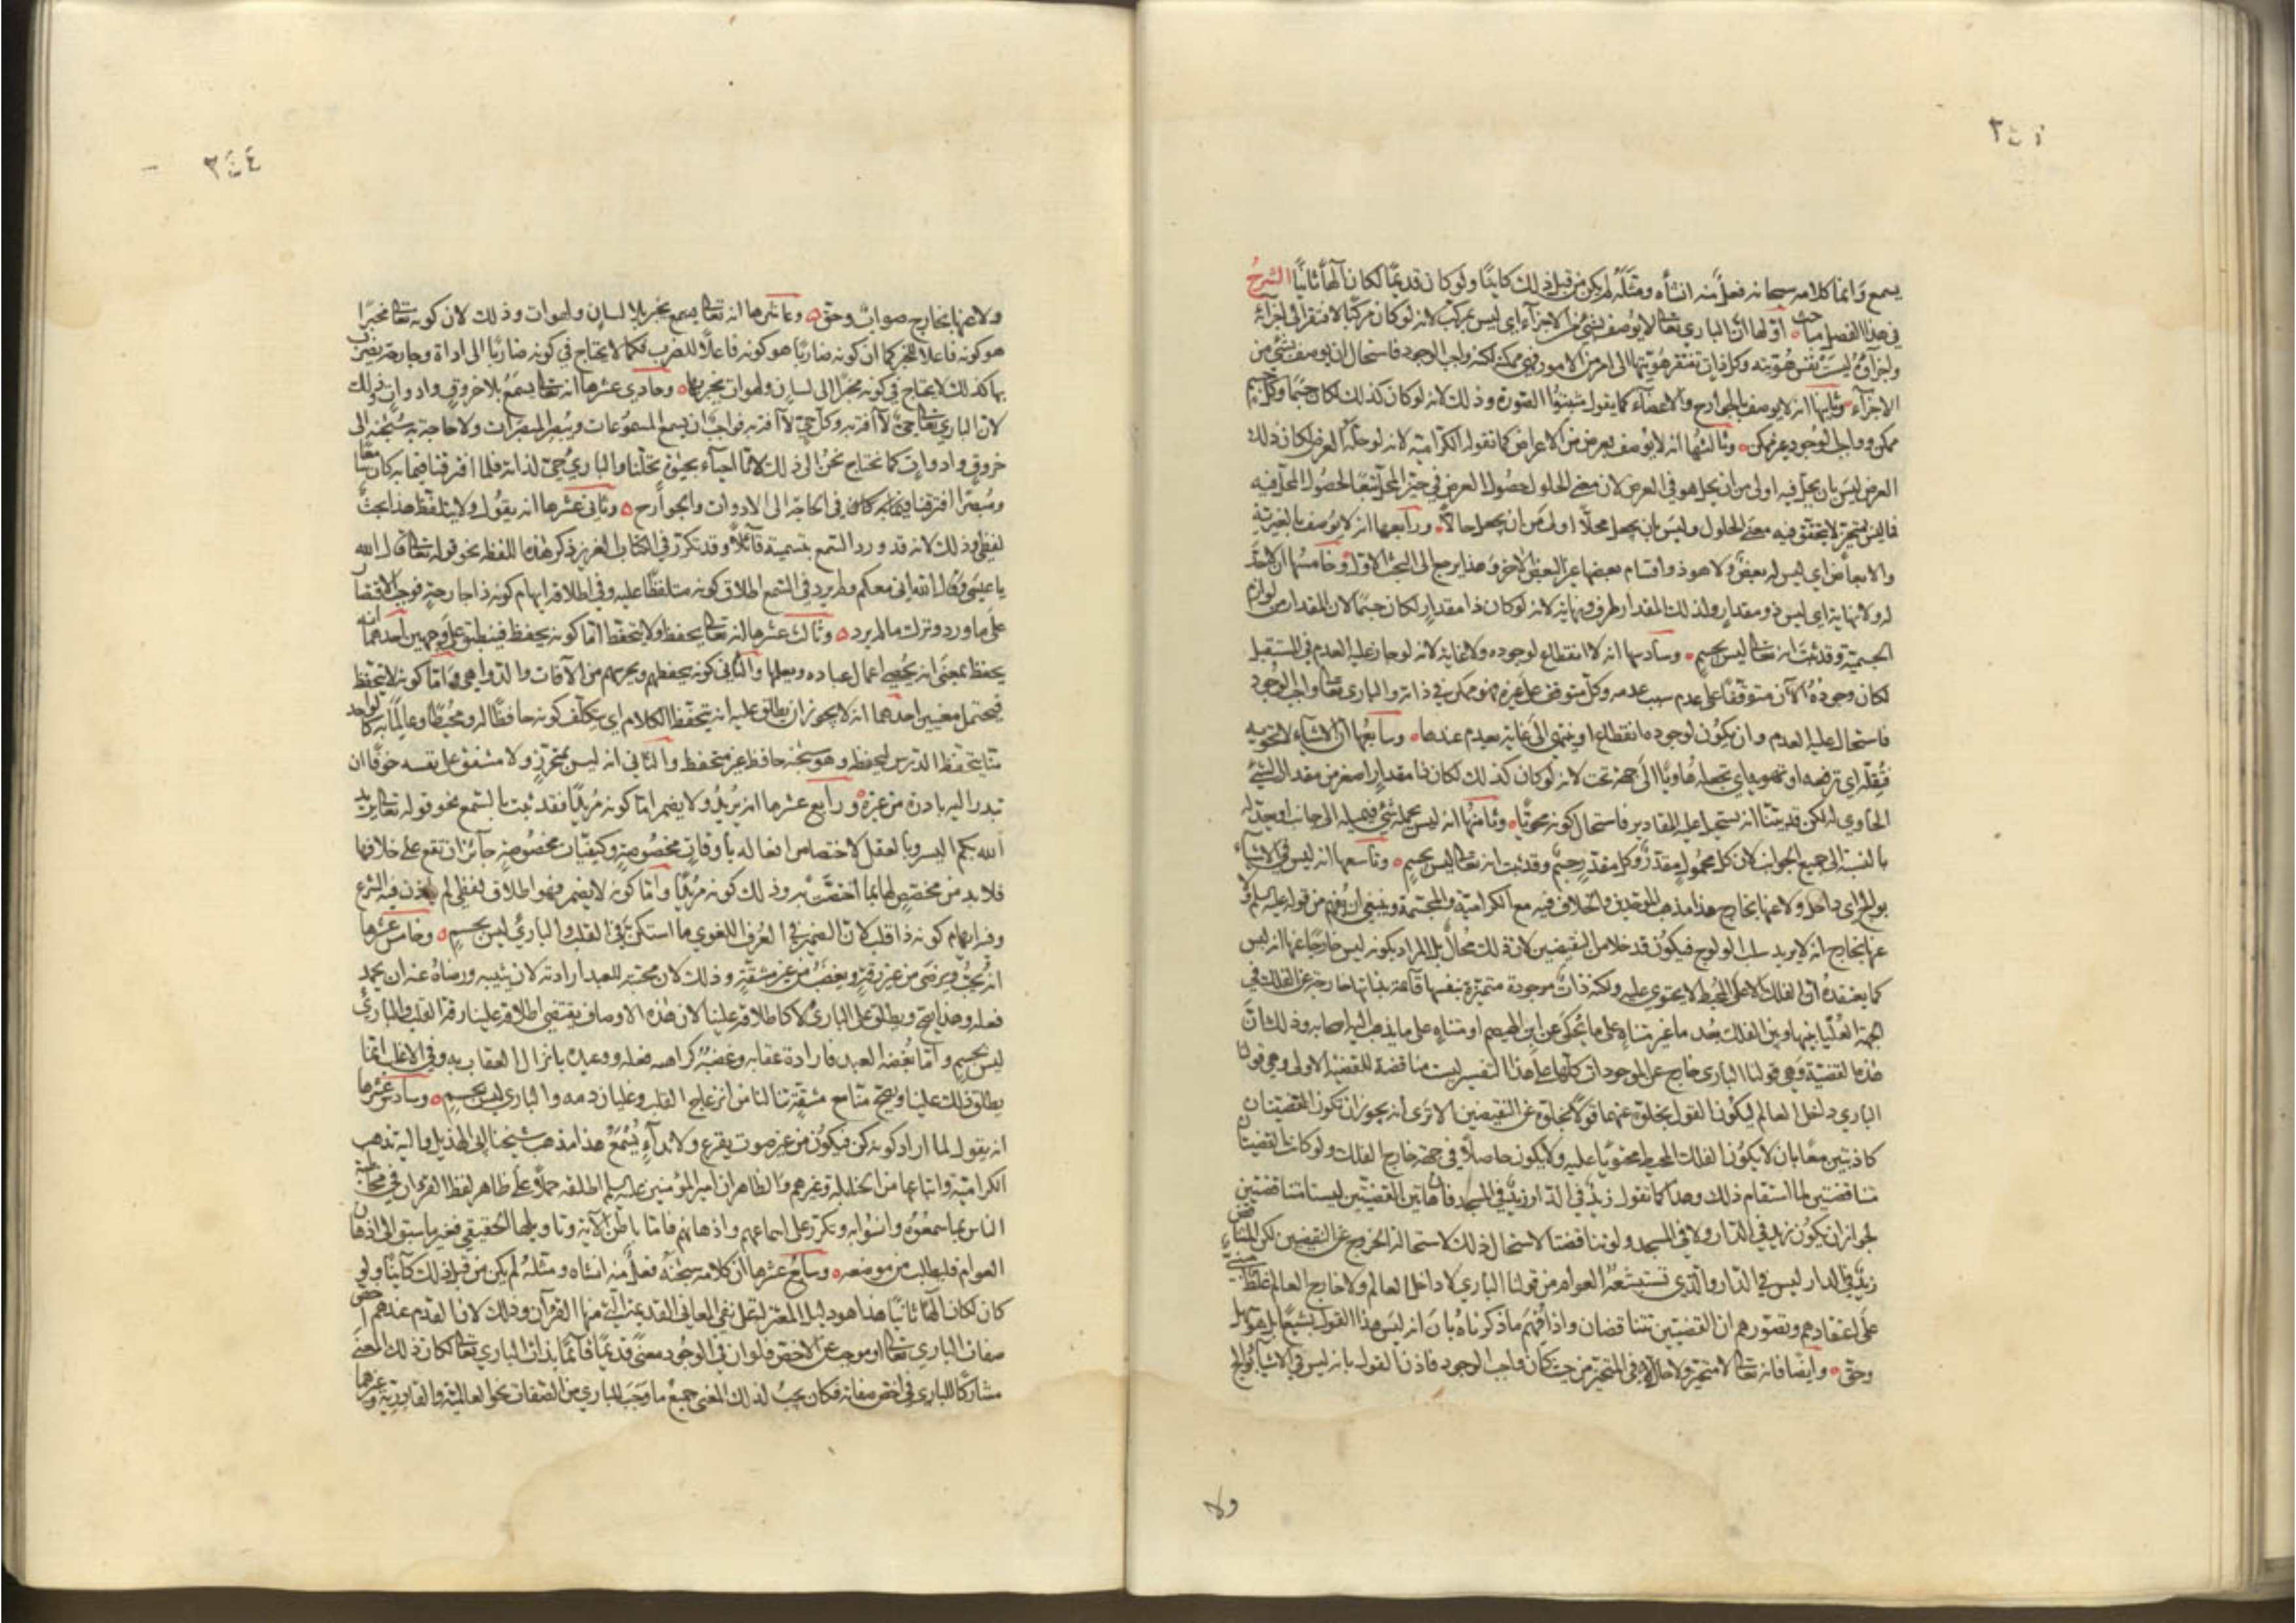 يسمع وانما كلامه سبحانه فعل منه انشأه ومثله لم يكن من قبل ذلك كاينا ولو كان قديما لكان الها ثانيا الشرح
في هذا الفصل مباحث اولها ان الباري تعالى لا يوصف بشئ من الاجزاء اي ليس بمركب لانه لو كان مركبا لافتقر الى اجزائه
واجزاؤه ليست نفس هويته وكل ذات تفتقر هويتها الى امر من الامور فهي ممكنة لكنه واجب الوجود فاستحال ان يوصف بشئ من
الاجزاء وثانيها انه لا يوصف بالجوارح والاعضاء كما يقول مثبتوا الصورة وذلك لانه لو كان كذلك لكان جسما وكل جسم
ممكن وواجب الوجود غير ممكن وثالثها انه لا يوصف بعرض من الاعراض كما تقوله الكرامية لانه لو حله العرض لكان ذلك
العرض ليس بان يحل فيه اولى من ان يحل هو في العرض لان معنى الحلول حصول العرض في حيز المحل تبعا لحصول المحل فيه
فما ليس بمتحيز لا يتحقق فيه معنى الحلول وليس بان يجعل محلا اولى من ان يجعل حالا ورابعها انه لا يوصف بالغيرية
والابعاض اي ليس له بعض ولا هو ذو اقسام بعضها غير البعض الاخر وهذا يرجع الى البحث الاول وخامسها ان لا حد
له ولا نهاية اي ليس ذو مقدار ولذلك المقدار طرف ونهاية لانه لو كان ذا مقدار لكان جسما لان المقدار من لوازم
الجسمية وقد ثبت انه تعالى ليس بجسم وسادسها انه لا انقطاع لوجوده ولا غاية لانه لو جاز عليه العدم في المستقبل
لكان وجوده الآن متوقفا على عدم سبب عدمه وكل متوقف على غيره فهو ممكن في ذاته والباري تعالى واجب الوجود
فاستحال عليه العدم وان يكون لوجوده انقطاع او ينتهي الى غاية يعدم عندها وسابعها ان الاشياء لا تحويه
فتقله اي ترفعه او تهويه اي تجعله هاويا الى جهة تحت لانه لو كان كذلك لكان ذا مقدار اصغر من مقدار الشئ
الحاوي له لكن قد بينا انه يستحيل عليه المقادير فاستحال كونه محويا وثامنها انه ليس يحمله شئ فيميله الى جانب او يعدله
بالنسبة الى جميع الجوانب لان كل محمول مقدر وكل مقدر جسم وقد ثبت انه تعالى ليس بجسم وتاسعها انه ليس في الاشياء
بوالج اي داخل ولا عنها بخارج هذا مذهب الموحدين والخلاف فيه مع الكرامية والمجسمة وينبغي ان يفهم من قوله عليه السلم ولا
عنها بخارج انه لا يريد سلب الولوج فيكون قد خلا من النقيضين لان ذلك محال بل المراد بكونه ليس خارجا عنها انه ليس
كما يعتقده ان الفلك الاعلى المحيط لا يحتوي عليه ولكنه ذات موجودة متميزة بنفسها قائمة بذاتها خارجة عن الفلك في
الجهة العليا بينها وبين الفلك بعد ما غير متناه على ما يحكى عن ابن الهيصم او متناه على ما يذهب اليه اصحابه وذلك ان
هذه القضية وهي قولنا الباري خارج عن الموجودات كلها على هذا التفسير ليست مناقضة للقضية الاولى وهي قولنا
الباري داخل العالم ليكون القول بخلوه عنهما قولا بخلوه عن النقيضين الا ترى انه يجوز ان تكون القضيتان
كاذبتين معا بان لا يكون الفلك المحيط محتويا عليه ولا يكون حاصلا في جهة خارج الفلك ولو كانت القضيتان
متناقضتين لما استقام ذلك وهذا كما تقول زيد في الدار زيد في المسجد فان هاتين القضيتين ليستا متناقضتين
لجواز ان يكون زيد في الدار ولا في المسجد ولو تناقضتا لاستحال ذلك لاستحالة الخروج عن النقيضين لكن المتناقض
زيد في الدار ليس في الدار والذي تستشنعه العوام من قولنا الباري لا داخل العالم ولا خارج العالم غلط مبني
على اعتقادهم وتصورهم ان القضيتين تتناقضان واذا فهم ما ذكرناه بان انه ليس هذا القول بشنيع بل هو سهل
وحق وايضا فانه تعالى لا متحيز ولا حال في المتحيز من حيث كان واجب الوجود فاذن القول بانه ليس في الاشياء بوالج
ولا
ولا عنها بخارج صواب وحق وعاشرها انه تعالى يخبر بلا لسان ولهوات وذلك لان كونه تعالى مخبرا
هو كونه فاعلا للخبر كما ان كونه ضاربا هو كونه فاعلا للضرب فكما لا يحتاج في كونه ضاربا الى اداة وجارحة يضرب
بها كذلك لا يحتاج في كونه مخبرا الى لسان ولهوات يخبر بها وحادي عشرها انه تعالى يسمع بلا خروق وادوات وذلك
لان الباري تعالى حي لا آفة به وكل حي لا آفة به فواجب ان يسمع المسموعات ويبصر المبصرات ولا حاجة به سبحنه الى
خروق وادوات كما نحتاج نحن الى ذلك لانا احياء بحيوة تحلنا والباري حي لذاته فلما افترقنا فيما به كان سامعا
ومبصرا افترقنا في الحاجة الى الادوات والجوارح وثاني عشرها انه يقول ولا يتلفظ هذا بحث
لفظي وذلك لانه قد ورد السمع بتسمية قائلا وقد تكرر في الكتاب العزيز ذكر هذه اللفظة نحو قوله تعالى قال الله
يا عيسى وقال الله اني معكم ولم يرد في السمع اطلاق كونه متلفظا عليه وفي اطلاقه ايهام كونه ذا جارحة فوجب الاقتصار
على ما ورد وترك ما لم يرد وثالث عشرها انه تعالى يحفظ ولا يتحفظ اما كونه يحفظ فينطلق على وجهين احدهما انه
يحفظ بمعنى انه يحصي اعمال عباده ويعلمها والثاني كونه يحفظهم ويحرسهم من الآفات والدواهي واما كونه لا يتحفظ
فيحتمل معنيين احدهما انه لا يجوز ان يطلق عليه انه يتحفظ الكلام اي يتكلف كونه حافظا له ومحيطا وعالما به كالواحد
منا يتحفظ الدرس ليحفظه وهو سبحنه حافظ غير متحفظ والثاني انه ليس بمتحرز ولا مشفق على نفسه خوفا ان
تبدر اليه بادرة من غيره ورابع عشرها انه يريد ولا يضمر اما كونه مريدا فقد ثبت بالسمع نحو قوله تعالى يريد
الله بكم اليسر وبالعقل لاختصاص افعاله باوقات مخصوصة وكيفيات مخصوصة جائز ان تقع على خلافها
فلا بد من مخصص لها بما اختصت به وذلك كونه مريدا واما كونه لا يضمر فهو اطلاق لفظي لم يأذن فيه الشرع
وفيه ايهام كونه ذا قلب لان الضمير في العرف اللغوي ما استكن في القلب والباري ليس بجسم وخامس عشرها
انه يحب ويرضى من غير رقة ويغضب من غير مشقة وذلك لان محبته للعبد ارادته لان يثيبه ورضاه عنه ان يحمد
فعله وهذا يصح ويطلق على الباري لا كاطلاقه علينا لان هذه الاوصاف يقتضي اطلاقه علينا رقة القلب والباري
ليس بجسم واما بغضه العبد فارادة عقابه وغضبه كراهة فعله ووعيده بانزال العقاب به وفي الاغلب انما
يطلق ذلك علينا ويصح منا مع مشقة تنالنا من انزعاج القلب وغليان دمه والباري ليس بجسم وسادس عشرها
انه يقول لما اراد كونه كن فيكون من غير صوت يقرع ولا نداء يسمع هذا مذهب شيخنا ابي الهذيل واليه تذهب
الكرامية واتباعها من الحنابلة وغيرهم والظاهر ان امير المؤمنين عليه السلم اطلقه حملا على ظاهر لفظ القرءان في مخاطبة
الناس بما سمعوه وانسوا به وتكرر على اسماعهم واذهانهم فاما باطن الآية وتاويلها الحقيقي فغير ما يسبق الى اذهان
العوام فليطلب من موضعه وسابع عشرها ان كلامه سبحنه فعل منه انشاه ومثله لم يكن من قبل ذلك كائنا ولو
كان لكان الها ثانيا هذا هو دليل المعتزلة على نفي المعاني القديمة التي منها القرآن وذلك لان القدم عندهم اخص
صفات الباري تعالى او موجب عن الاخص فلو ان في الوجود معنى قديما قائما بذات الباري تعالى لكان ذلك المعنى
مشاركا للباري في اخص صفاته فكان يجب لذلك المعنى جميع ما وجب للباري من الصفات نحو العالمية والقادرية وغيرهما